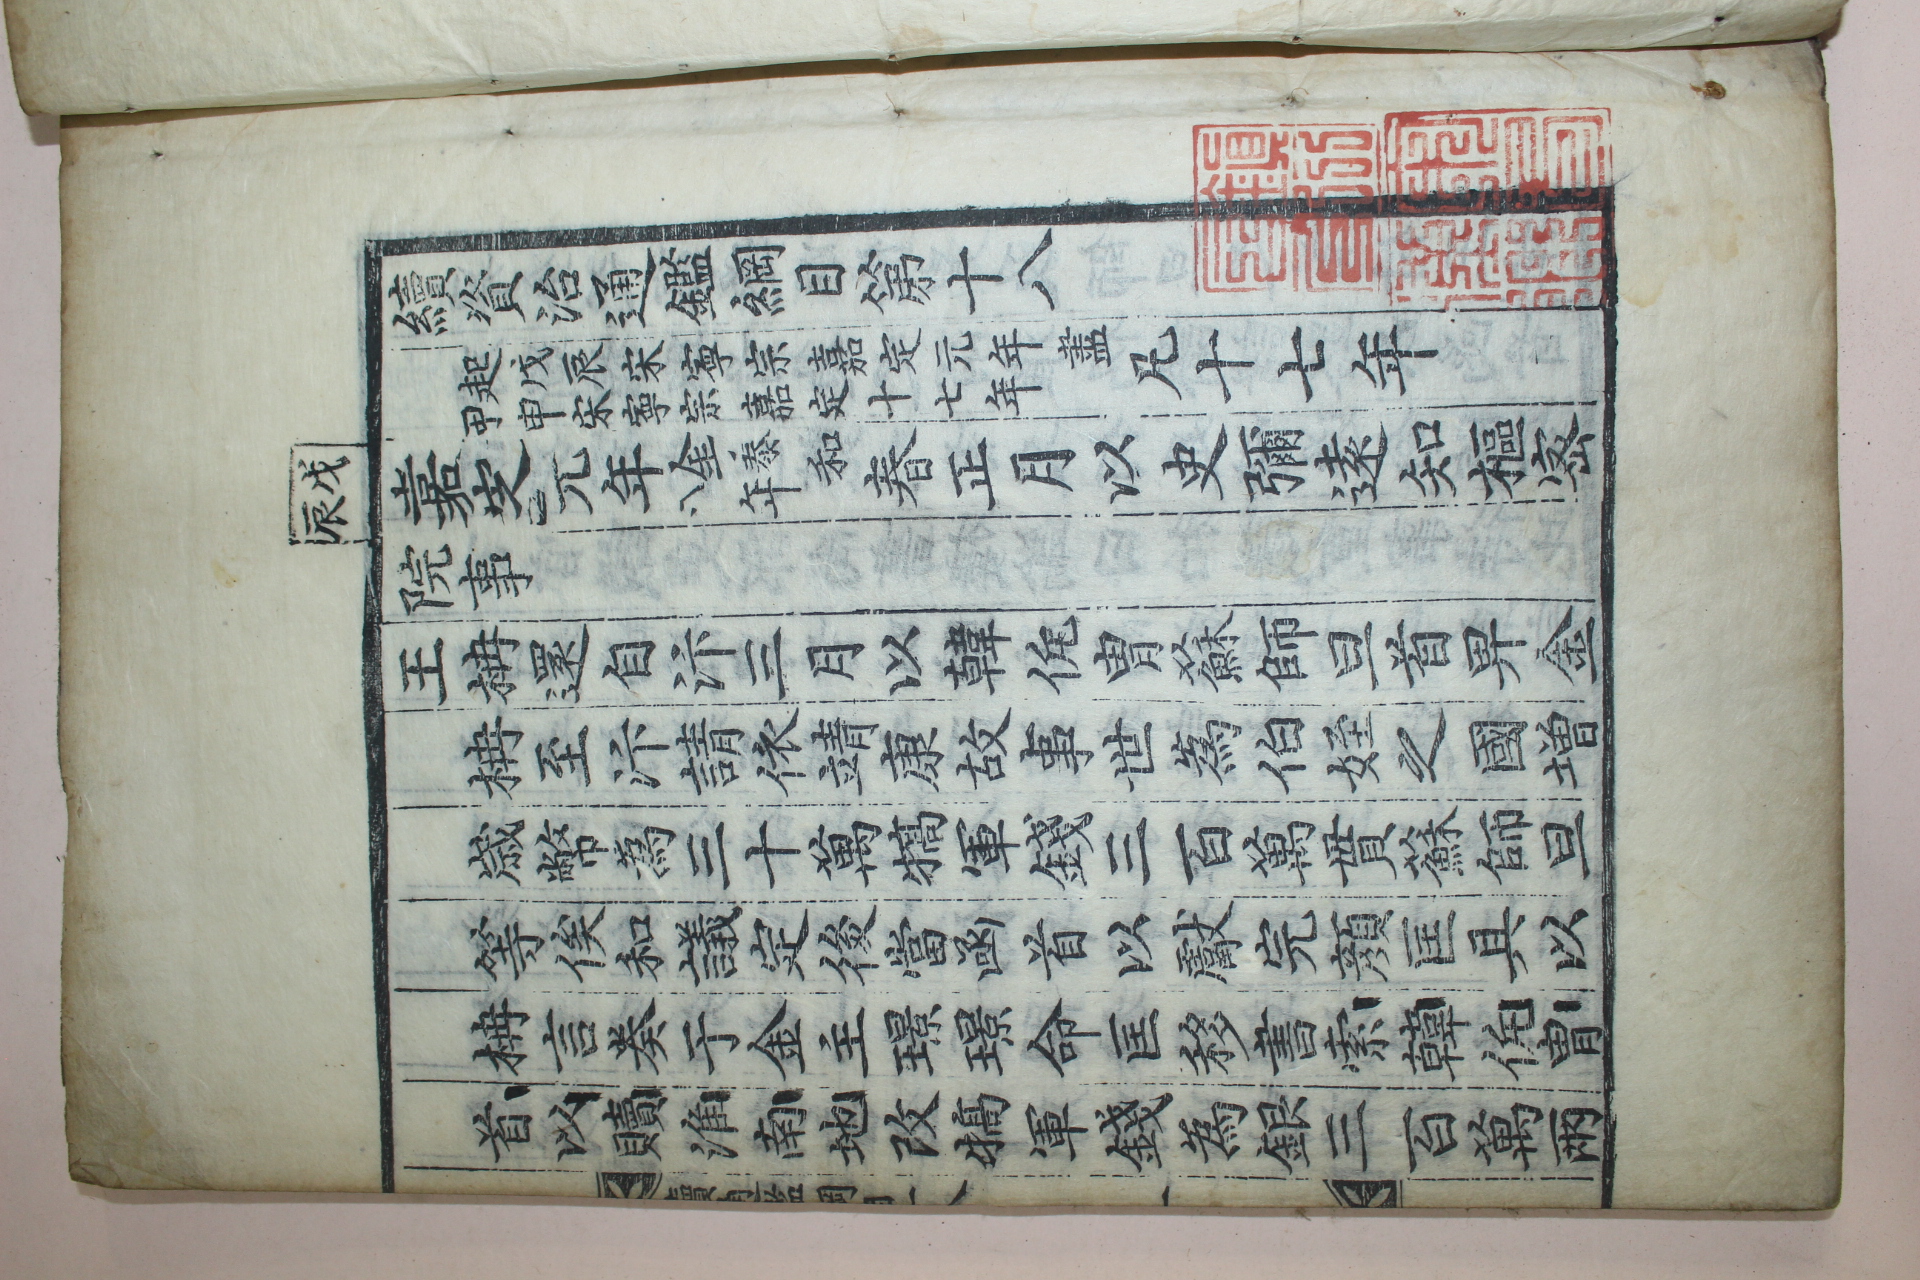 戊辰
續資治通鑑綱目第十八
起戊辰宋寧宗嘉定元年盡
甲申宋寧宗嘉定十七年
凡十七年
嘉定元年金泰和八年春正月以史彌遠知樞密
院事
王柟還自汴三月以韓侂胄蘇師旦首畀金
柟至汴請依靖康故事世為伯姪之國增
歲幣為三十萬犒軍錢三百萬貫蘇師旦
等俟和議定後當函首以獻完顏匡具以
柟言奏于金主璟璟命匡移書索韓侂胄
首以贖淮南地改犒軍錢為銀三百萬兩
續通鑑綱目十八
一